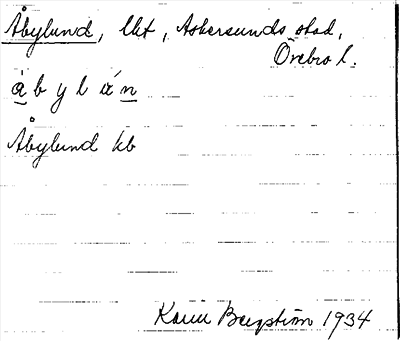 Åbylund, lht, Askersunds stad,
Örebro l.
å̀ b y l ú n
Åbylund kb
Karin Bergström 1934